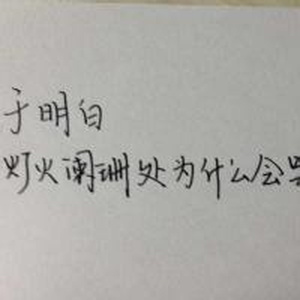 于明白
灯火阑珊处为什么会